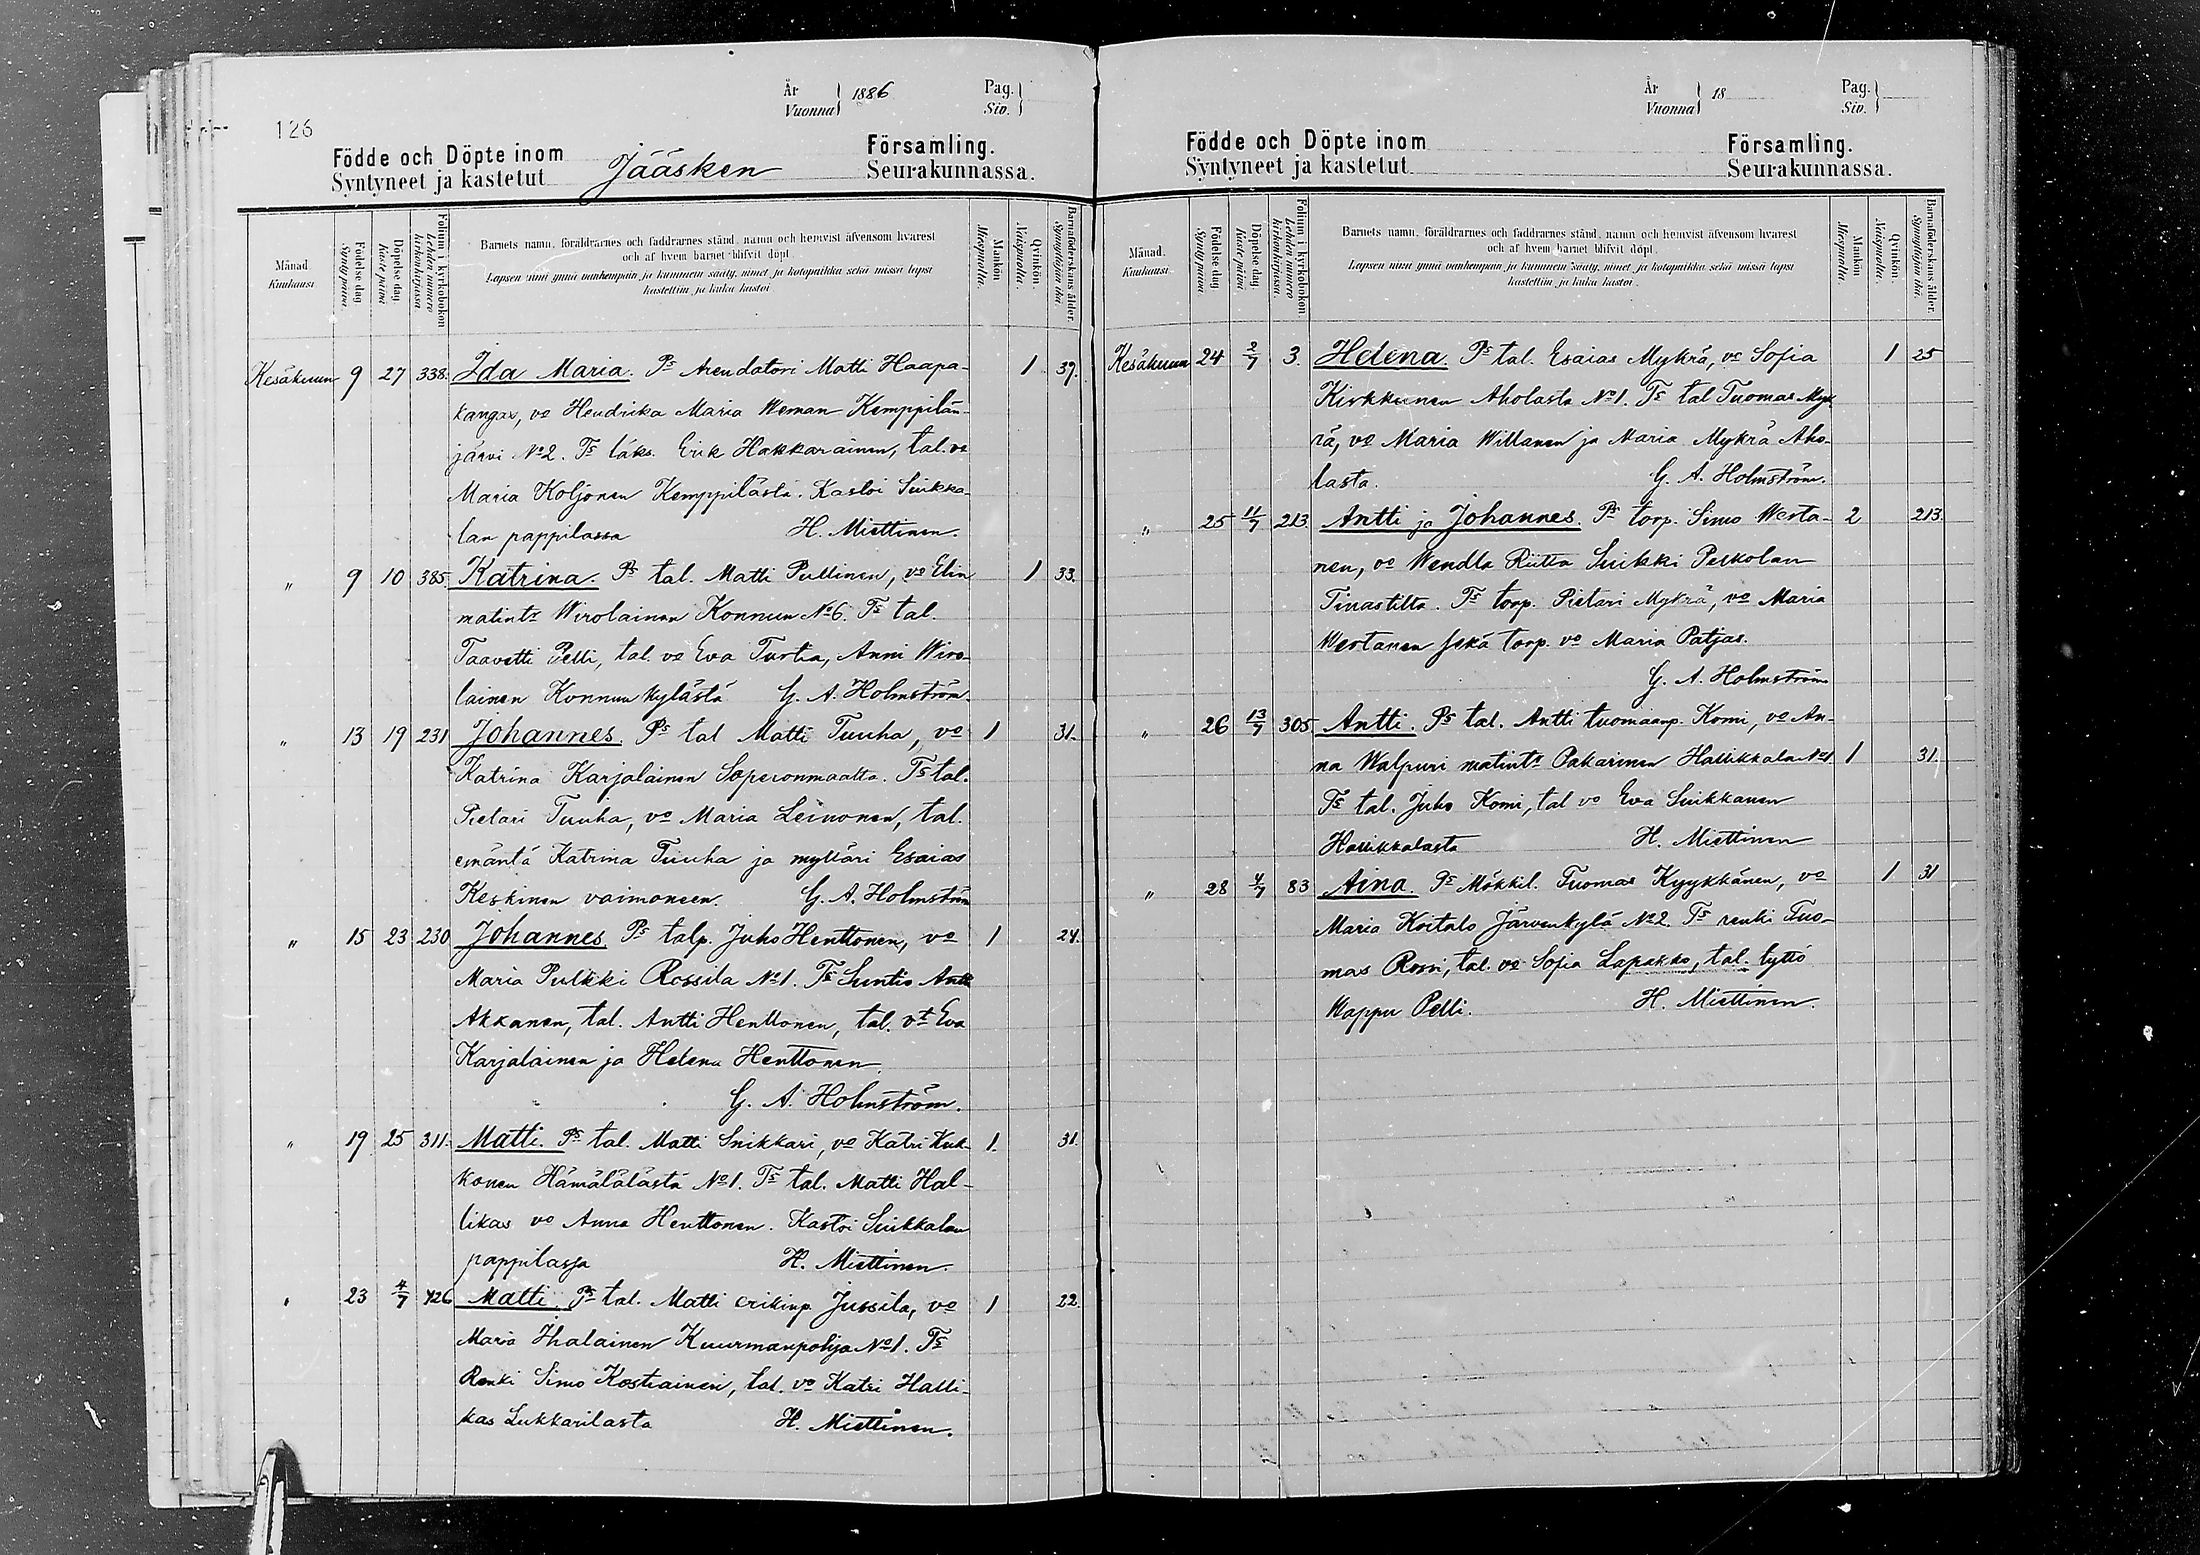 År
Vuonna } 1886
Pag.
Siv. }
126
Födde och Döpte inom
Syntyneet ja kastetut
Jääsken
Församling.
Seurakunnassa.
Månad.
Kuukausi.
Födelse dag
Syntypäivä
Döpelse dag.
Kaste päivä
Folium i kyrkoboken
Lehden numero kirkonkirjassa
Barnets namn, föräldrarnes och faddrarnes stånd, namn och hemvist äfvensom hvarest
och af hvem barnet blifvit döpt.
Lapsen nimi ynnä vanhempain ja kummein sääty, nimet ja kotopaikka sekä missä lapsi
kastettiin ja kuka kastoi.
Mankön
Miespuolta.
Qvinkön.
Naispuolta.
Barnaföderskans ålder.
Synnyttäjän ikä.
Kesäkuun 9 27 338. Ida Maria. Ps Arendatori Matti Haapa- 1 39.
kangas, vo Hendrika Maria Weman Kemppilän-
järvi No 2. Ts läks. Erik Hakkarainen, tal. vo
Maria Koljonen Kemppilästä. Kastoi Suikka-
lan pappilassa H. Miettinen.
" 9 10 385. Katrina. Ps tal. Matti Pullinen, vo Elin 1 33.
matint. Wirolainen Konnun No 6. Ts tal.
Taavetti Pelli, tal. vo Eva Turtia, Anni Wiro-
lainen Konnun kylästä G. A. Holmström.
" 13 19 231 Johannes. Ps tal Matti Tuuha, vo 1 31.
Katrina Karjalainen Soperonmaalta. Ts tal.
Pietari Tuuha, vo Maria Leinonen, tal.
emäntä Katrina Tuuha ja mylläri Esaias
Keskinen vaimoneen. G. A. Holmström
" 15 23 230 Johannes Ps talp. Juho Henttonen, vo 1 24.
Maria Pulkki Rossila No 1. Ts Suntio Antti
Akkanen, tal. Antti Henttonen, tal. vt Eva
Karjalainen ja Helena Henttonen.
G. A. Holmström.
" 19 25 311. Matti. Ps tal. Matti Snikkari, vo Katri Kuk- 1. 31.
konen Hämälälästä No 1. Ts tal. Matti Hal-
likas vo Anna Henttonen. Kastoi Suikkalan
pappilassa H. Miettinen.
" 23 4/7 426 Matti Ps tal. Matti erikinp. Jussila, vo 1 22.
Maria Ihalainen Kuurmanpohja No 1. Ts
Renki Simo Kostiainen, tal. vo Katri Halli-
kas Lukkarilasta H. Miettinen.
År
Vuonna } 18
Pag.
Siv. }
Födde och Döpte inom
Syntyneet ja kastetut
Församling.
Seurakunnassa.
Månad.
Kuukausi.
Födelse dag
Syntypäivä
Döpelse dag.
Kaste päivä.
Folium i kyrkoboken
Lehden numero kirkonkirjassa.
Barnets namn, föräldrarnes och faddrarnes stånd, namn och hemvist äfvensom hvarest
och af hvem barnet blifvit döpt.
Lapsen nimi ynnä vanhempain ja kummein sääty, nimet ja kotopaikka sekä missä lapsi
kastettiin ja kuka kastoi.
Mankön
Miespuolta.
Qvinkön.
Naispuolta.
Barnaföderskans ålder.
Synnyttäjän ikä.
Kesäkuun 24 2/7 3. Helena. Ps tal. Esaias Mykrä, vo Sofia 1 25
Kirkkunen Aholasta No 1. Ts tal Tuomas Myk
rä, vo Maria Willanen ja Maria Mykrä Aho-
lasta. G. A. Holmström.
" 25 11/7 213. Antti ja Johannes. Ps torp. Simo Westa- 2 213.
nen, vo Wendla Riitta Suikki Peskolan
Tiuastilta. Ts torp. Pietari Mykrä, vo Maria
Westanen sekä torp. vo Maria Patjas.
G. A. Holmström
" 26 13/7 305 Antti. Ps tal. Antti tuomaanp. Komi, vo An-
na Walpuri matint. Pakarinen Hallikkala No 1 1 31.
Ts tal. Juho Komi, tal vo Eva Suikkanen
Hallikkalasta H. Miettinen
" 28 4/7 83 Aina. Ps Mökkil. Tuomas Kyykkänen, vo 1 31
Maria Koitalo Järvenkylä No 2. Ts renki Tuo-
mas Rossi, tal. vo Sofia Lapakko, tal. tyttö
Wappu Pelli. H. Miettinen.